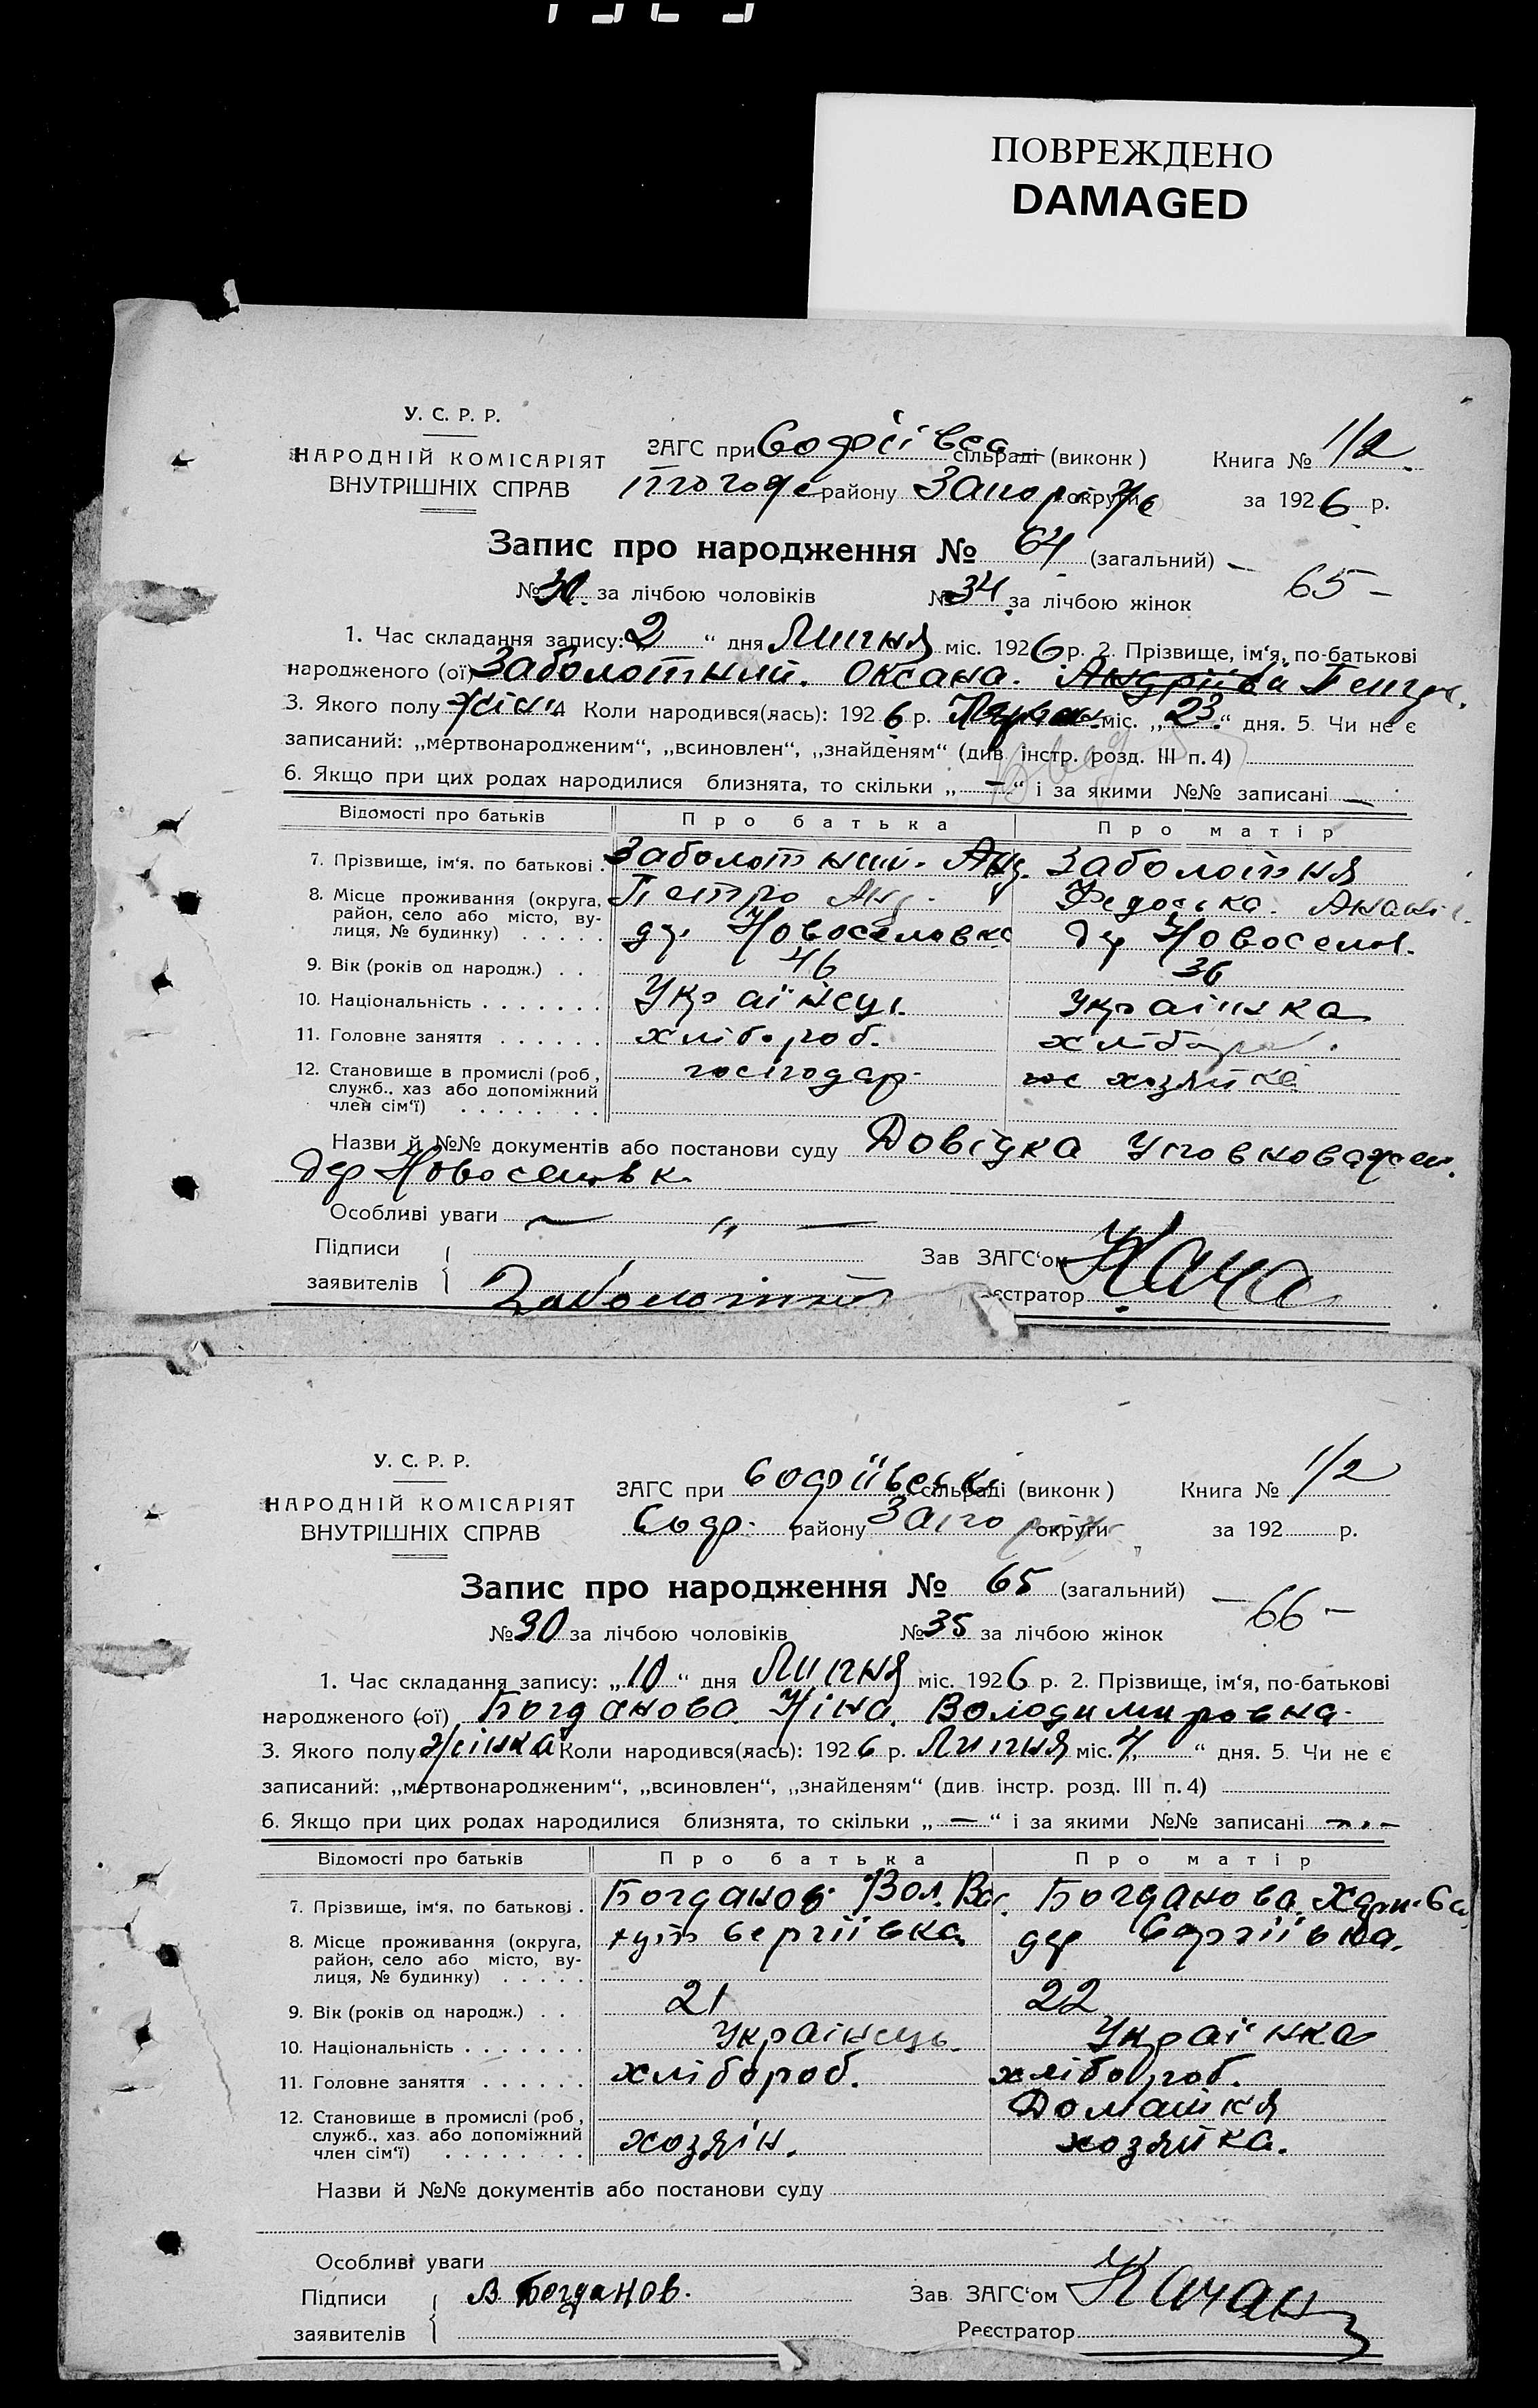 ПОВРЕЖДЕНО
DAMAGED
У. С. Р. Р.
НАРОДНІЙ КОМІСАРІЯТ
ВНУТРІШНІХ СПРАВ
ЗАГС при Софіївсь сільраді (виконк)
району Запоріж округи
Книга № 1/2
за 1926 р.
Запис про народження № 64 (загальний) — 65 —
№ 30 за лічбою чоловіків № 34 за лічбою жінок
1. Час складання запису: 2 “ дня Липня міс. 1926 р. 2. Прізвище, ім‘я, по-батькові
народженого (ої) Заболотний. Оксана. Андріїва Петр.
3. Якого полу жінк. 4 Коли народився(лась): 1926 р. міс. „23“ дня. 5. Чи не є
записаний: „мертвонародженим“, „всиновлен“, „знайденям“ (див. інстр. розд. III п. 4)
6. Якщо при цих родах народилися близнята, то скільки „—“ і за якими №№ записані —
Відомості про батьків Про батька Про матір
7. Прізвище, ім‘я. по батькові . Заболотний. Анд. Заболотня
8. Місце проживання (округа, район, село або місто, вулиця, № будинку) . . . . . Петро Анд. Федоська.
де. Новоселовка дер Новоселов.
9. Вік (років од народж.) . . 46 36
10. Національність . . . . . . . Українець Українка
11. Головне заняття . . . . . . хлібороб. хлібороб.
12. Становище в промислі (роб., служб., хаз або допоміжний член сім‘ї) . . . . . . . . господар. хозяйка
Назви й №№ документів або постанови суду Довідка Уповноважен.
дер Новоселівк.
Особливі уваги — „ —
Підписи
заявителів Заболотний
Зав ЗАГС‘ом Кача
еєстратор
У. С. Р. Р.
НАРОДНІЙ КОМІСАРІЯТ
ВНУТРІШНІХ СПРАВ
ЗАГС при Софіївські сільраді (виконк)
Соф. району Запоріж округи
Книга № 1/2
за 192 р.
Запис про народження № 65 (загальний) — 66 —
№ 30 за лічбою чоловіків № 35 за лічбою жінок
1. Час складання запису: „10“ дня Липня міс. 1926 р. 2. Прізвище, ім‘я, по-батькові
народженого (ої) Богданова. Ніна. Володимировна.
3. Якого полу жінка Коли народився(лась): 1926 р. Липня міс. 4 “ дня. 5. Чи не є
записаний: „мертвонародженим“, „всиновлен“, „знайденям“ (див. інстр. розд. III п. 4)
6. Якщо при цих родах народилися близнята, то скільки „—“ і за якими №№ записані —
Відомості про батьків Про батька Про матір
7. Прізвище, ім‘я. по батькові . Богданов. Вол. Вас. Богданова
8. Місце проживання (округа, район, село або місто, вулиця, № будинку) . . . . . хут Сергіївка. дер Сергіївка.
9. Вік (років од народж.) . . 21 22
10. Національність . . . . . . . Українець Українка
11. Головне заняття . . . . . . хлібороб. хлібороб.
12. Становище в промислі (роб., служб., хаз або допоміжний член сім‘ї) . . . . . . . . хозяїн. Домашня хозяйка.
Назви й №№ документів або постанови суду
Особливі уваги
Підписи В Богданов.
заявителів
Зав ЗАГС‘ом Качан
Реєстратор